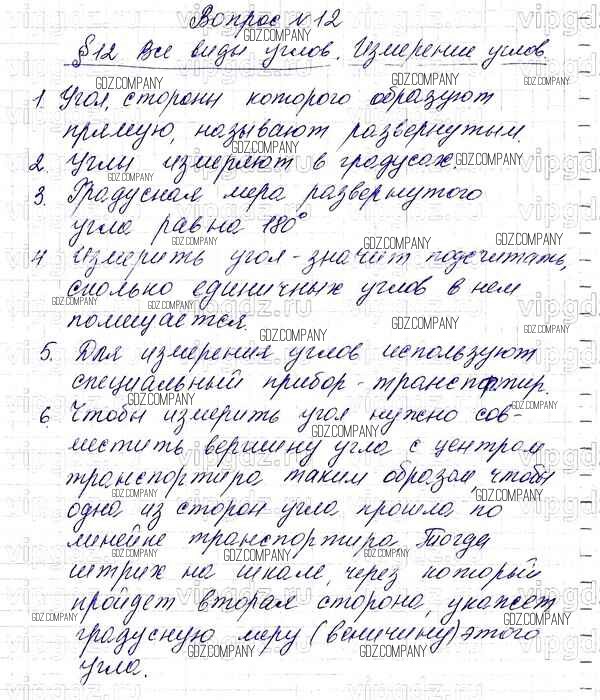 Вопрос №12
§12 Все виды углов. Измерение углов
1. Угол, стороны которого образуют
прямую, называют развернутым.
2. Углы измеряют в градусах.
3. Градусная мера развернутого
угла равна 180°
4 Измерить угол - значит подсчитать,
сколько единичных углов в нем
помещается.
5. Для измерения углов используют
специальный прибор - транспортир.
6. Чтобы измерить угол нужно сов-
местить вершину угла с центром
транспортира таким образом, чтобы
одна из сторон угла прошла по
линейке транспортира. Тогда
штрих на шкале, через который
пройдет вторая сторона, укажет
градусную меру (величину) этого
угла.